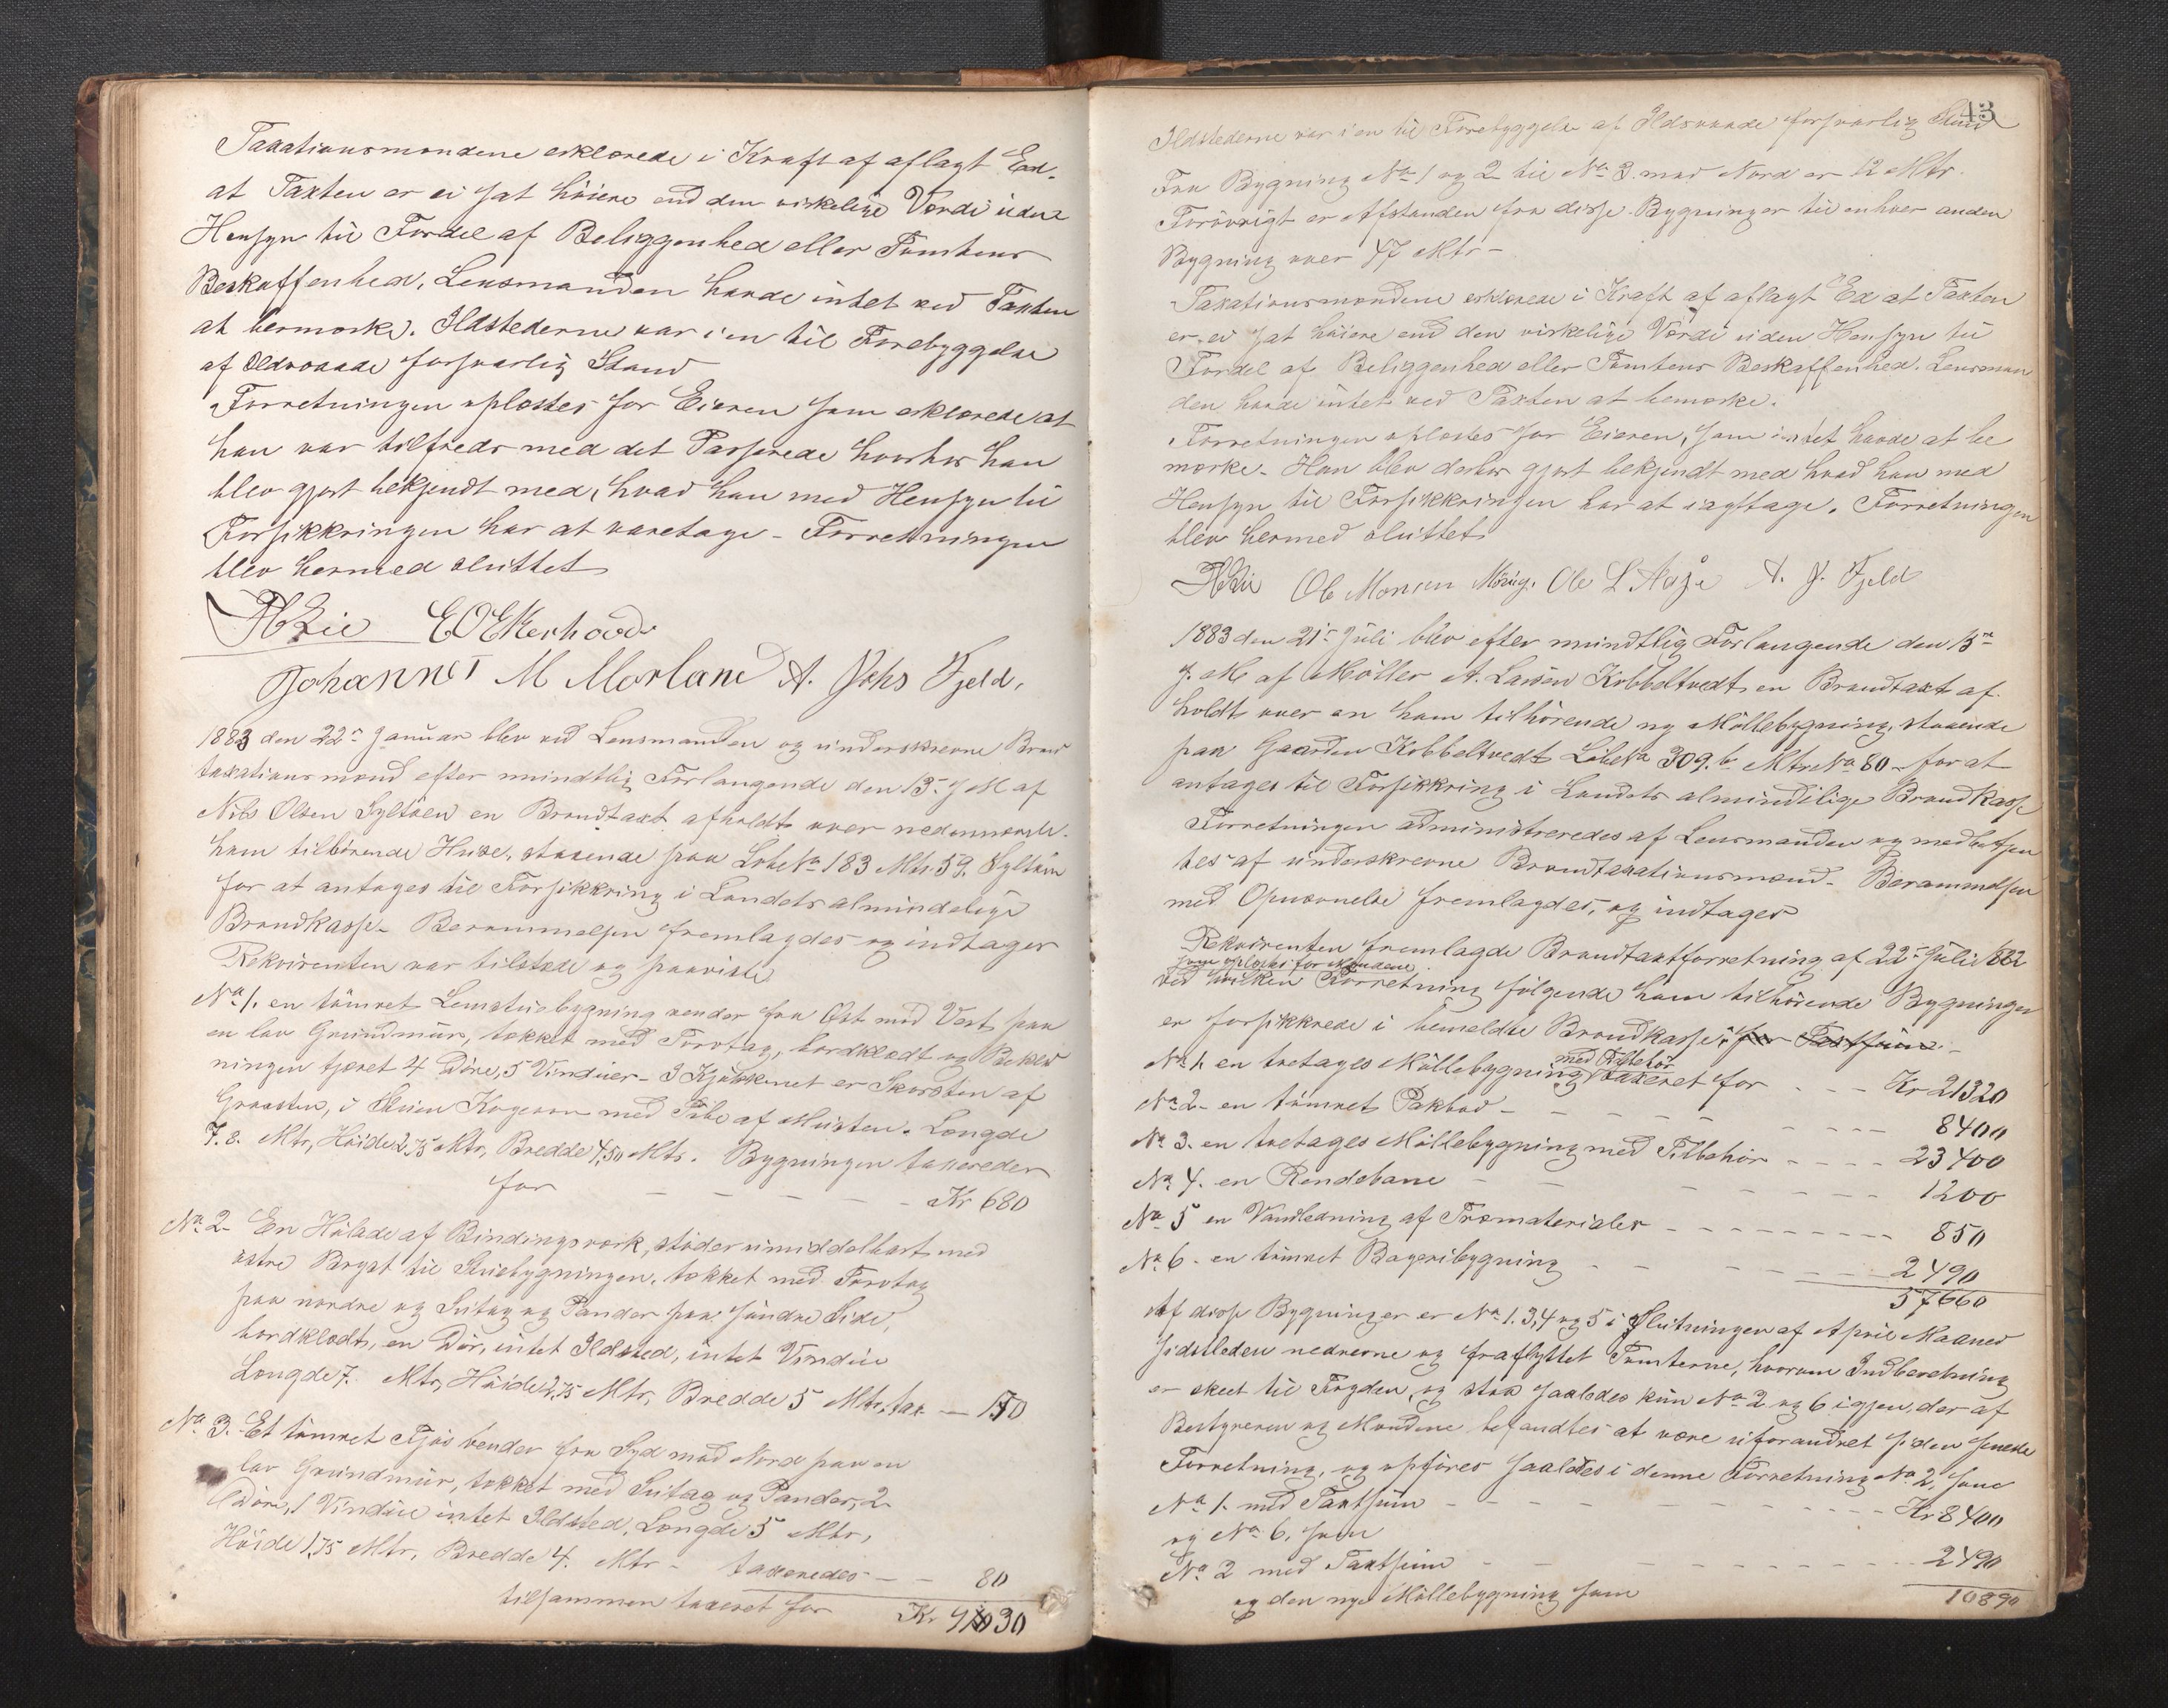 Taxationsmændene erklærede i Kraft af aflagt Eed,
at Taxten er ei sat høiere end den virkelige Værdi uden
Hensyn til Fordel af Beliggenhed eller Tomtens
Beskaffenhed, Lensmanden havde intet ved Taxten
at bemærke. Ildstederne var i en til Forebyggelse
af Ildsvaade forsvarlig Stand
Forretningen oplæstes for Eieren som erklærede at
han var tilfreds med det Passerede hvorhos han
blev gjort bekjendt med, hvad han med Hensyn til
Forsikkringen har at varetage - Forretningen
blev hermed sluttet
E O Ekerhovd
Johannes M Morland A. Johs Fjeld.
1883 den 22de Januar blev ved Lensmanden og underskrevne Brand
taxationsmænd efter mundtlig Forlangende den 13de J M af
Nils Olsen Syltøen en Brandtaxt afholdt over nedennævnte
ham tilhørende Huse, staaende paa Løbe No 183 Mtr. 59, Syltøen
for at antages til Forsikkring i Landets almindelige
Brandkasse - Berammelsen fremlagdes og indtages
Rekvirenten var tilstede og paaviste
No 1. en tømret Lemstuebygning vender fra Øst mod Vest paa
en lav Grundmur, tækket med Torvtag, bordklædt og Beklæd
ningen tjæret 4 Døre, 5 Vinduer - I Kjøkkenet er Skorsten af
Graasten, i Stuen Kogeovn med Pibe af Mursten. Længde
7.8. Mtr, Høide 2,75 Mtr, Bredde 4,50 Mtr. Bygningen taxeredes
for - - - - - Kr 680
No 2- En Hølade af Bindingsværk, støder umiddelbart med
østre Længde til Stuebygningen, tækket med Torvtag
paa nordre og Sutag og Pander paa søndre Side,
bordklædt, en Dør, intet Ildsted, intet Vindue
Længde 7. Mtr, Høide 2,75 Mtr, Bredde 5 Mtr, tax - 150
No 3. Et tømret Fjøs vender fra Syd mod Nord paa en
lav Grundmur, tækket med Sutag og Pander, 2
Døre, 1 Vindue intet Ildsted, Længde 5 Mtr,
Høide 1,75 Mtr, Bredde 4. Mtr - taxeredes - - 80
tilsammen taxeret for Kr 930
43
Ildstederne var i en til Forebyggelse af Ildsvaade forsvarlig Stand
Fra Bygning No 1 og 2 til No 3. mod Nord er 12 Mtr.
Forøvrigt er Afstanden fra disse Bygninger til enhver anden
Bygning over 47 Mtr -
Taxationsmændene erklærede i Kraft af aflagt Ed at Taxten
er ei sat høiere end den virkelige Værdi uden Hensyn til
Fordel af Beliggenhed eller Tomtens Beskaffenhed. Lensman
den havde intet ved Taxten at bemærke.
Forretningen oplæstes for Eieren, som intet havde at be
mærke - Han blev derhos gjort bekjendt med hvad han med
Hensyn til Forsikkringen har at iagttage. Forretningen
blev hermed sluttet
Ole Monsen Ole L Aase A. J. Fjeld
1883 den 21de Juli blev efter mundtlig Forlangende den 13de
J. M. af Møller A. Larsen Kobbeltvedt en Brandtaxt af
holdt over en ham tilhørende ny Møllebygning, staaende
paa Gaarden Kobbeltvedt Løbe No 309. b Mtr No 80 - for at
antages til Forsikkring i Landets almindelige Brandkasse
Forretningen administreredes af Lensmanden og medbetjen
tes af underskrevne Brandtaxationsmænd - Berammelsen
med Opnævnelse fremlagdes, og indtages
Rekvirenten fremlagde Brandtaxtforretning af 22de Juli 1882
som oplæstes for Mændene
ved hvilken Forretning følgende ham tilhørende Bygninger
er forsikkrede i bemeldte Brandkasse: for Taxtsum -
No 1. en tretages Møllebygning med Tilbehør taxeret for - - - Kr 21320
No 2 - en tømret Pakbod - - - - - - 8400
No 3. en toetages Møllebygning med Tilbehør - - - - 23400
No 4. en Rendebane - - - - - - 1200
No 5 en Vandledning af Træmaterialer - - - - - - 850
No 6 - en tømret Bageribygning - - - - - 2490
57660
Af disse Bygninger er No 1. 3, 4 og 5 i Slutningen af April Maaned
sidstleden nedrevne og fraflyttet Tomterne, hvorom Indberetning
er skeet til Fogden, og staa saaledes kun No 2 og 6 igjen, der af
Bestyreren og Mændene befandtes at være uforandret siden seneste
Forretning, og opføres saaledes i denne Forretning No 2, som
No 1. med Taxtsum - - - - - - Kr 8400
og No 6. som
No 2 med Taxtsum - - - - - - 2490
10890
og den nye Møllebygning som